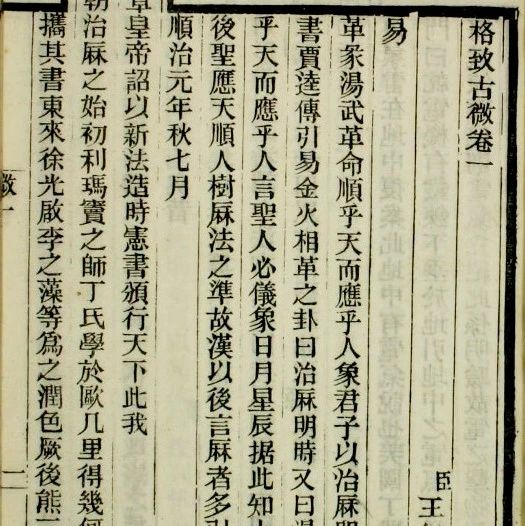 格致古微卷一
臣王
易
革彖湯武革命順乎天而應乎人象君子以治厤明
書賈逵傳引易金火相革之卦曰治厤明時又曰湯
乎天而應乎人言聖人必儀象日月星辰据此知
後聖應天順人樹厤法之準故漢以後言厤者多引
順治元年秋七月
章皇帝詔以新法造時憲書頒行天下此我
朝治厤之始初利瑪竇之師丁氏學於歐几里得幾何
攜其書東來徐光啟李之藻等為之潤色厥後熊三
微一